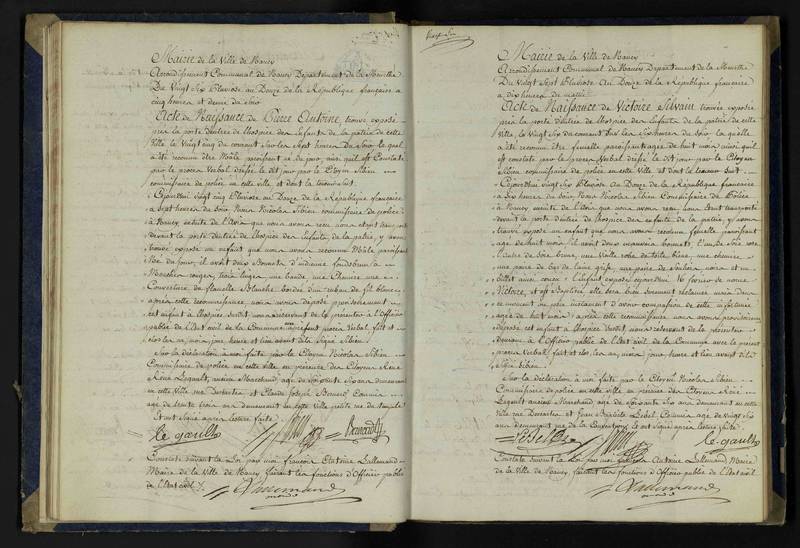 Mairie de la Ville de Nancy
Arrondissement Communal de Nancy Département de la Meurthe
Du Vingt Six Pluviose An Douze de la République française à
cinq heures et demie du soir
Acte de Naissance de Pierre Antoine, trouvé exposé
près la porte d'entrée de l'hospice des Enfants de la patrie de cette
Ville le Vingt cinq du courant Sur les Sept heures Du Soir lequel
a été reconnu être Mâle paroissant né de ce jour, ainsi qu'il est Constaté
par le procès Verbal dressé le dit jour par le Citoyen Sibien
commissaire de police en cette ville et dont la teneur suit.
Cejourdhui Vingt cinq Pluviose An Douze de la République française
à Sept heures du Soir Nous Nicolas Sibien commissaire de police
à Nancy
devant la porte d'entrée de l'hospice des Enfants de la patrie, y avons
trouvé exposé un enfant que nous avons reconnu Mâle paroissant
Né du jour, il avoit deux Bonnets d'indienne
Mouchoir rouge, trois langes une bande une Chemise une
Couverture de flanelle Blanche bordée d'un ruban de fil blanc
après cette reconnoissance, nous avons déposé provisoirement
cet enfant à l'hospice Susdit nous réservant de le présenter à l'Officier
public de l'Etat civil de la Commune avec le présent procès Verbal, fait et
clos les an, mois, jour, heure et lieu avant dits Signé Sibien.
Sur la déclaration à nous faite par le Citoyen Nicolas Sibien
Commissaire de police en cette ville en présence des Citoyens René
Legault, ancien Marchand, agé de soixante Six ans demeurant
en cette Ville rue Descartes et Claude Joseph Commis
agé de trente trois ans demeurant en cette Ville petite rue du
Et ont Signé après lecture faite
Le gault
Constaté suivant la Loi par moi françois Antoine Lallemand
Maire de la Ville de Nancy faisant les fonctions d'Officier public
de l'Etat civil
Lallemand
Mairie de la Ville de Nancy
Arrondissement Communal de Nancy Département de la Meurthe
Du Vingt Sept Pluviose An Douze de la République française
à dix heures du matin
Acte de Naissance de Victoire Silvain trouvée exposée
près la porte d'entrée de l'hospice des Enfants de la patrie de cette
Ville, le Vingt Six du courant Sur les Six heures du Soir, laquelle
a été reconnu être femelle paroissant agée de huit mois ainsi qu'il
est constaté par le procès Verbal dressé le dit jour par le Citoyen
Sibien commissaire de police en cette Ville et dont la teneur Suit
Cejourdhui Vingt Six Pluviose An Douze de la République française
à Six heures du Soir, Nous Nicolas Sibien Commissaire de Police
à Nancy
devant la porte d'entrée de l'hospice des enfants de la patrie, y avons
trouvé exposé un enfant que nous avons reconnu femelle paroissant
agé de huit mois il avoit deux mauvais bonnets, l'un de soie rose
l'autre de soie brune, une Vieille robe de toile bleue, une chemise
une paire de bas de laine grise, une paire de Souliers noirs et un
billet ainsi conçu: l'Enfant exposé cejourdhui 16 fevrier se nomme
Victoire, est Baptisée elle sera bien surement réclamée mais dans
ce moment on prie instament d'avoir compassion de cette infortunée
agée de huit mois, après cette reconnoissance nous avons provisoirement
déposé cet enfant à l'hospice Susdit, nous réservant de la présenter
demain à l'Officier public de l'Etat civil de la Commune avec le présent
procès Verbal, fait et clos les an, mois, jour heure et lieu avant dits
Signé Sibien.
Sur la déclaration à nous faite par le Citoyen Nicolas Sibien
Commissaire de police en cette ville en présence des Citoyens René
Legault ancien Marchand agé de soixante Six ans demeurant en cette
Ville rue Descartes et Jean Baptiste Lebel Commis agé de Vingt Six
ans demeurant rue de la et ont Signé après lecture faite.
Le gault
Constaté suivant la Loi par moi françois Antoine Lallemand Maire
de la Ville de Nancy, faisant les fonctions d'Officier public de l'Etat civil
Lallemand